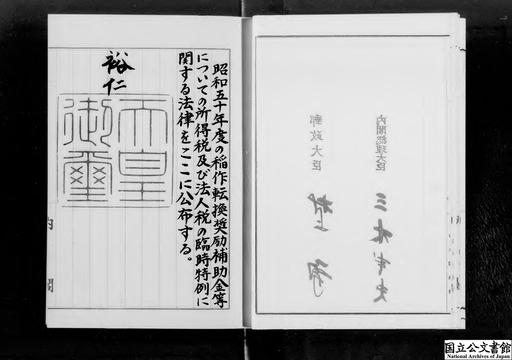 内閣総理大臣
三木武夫
郵政大臣
村上勇
昭和五十年度の稲作転換奨励補助金等
についての所得税及び法人税の臨時特例に
関する法律をここに公布する。
裕仁
天皇
御璽
内閣
国立公文書館
National Archives of Japan